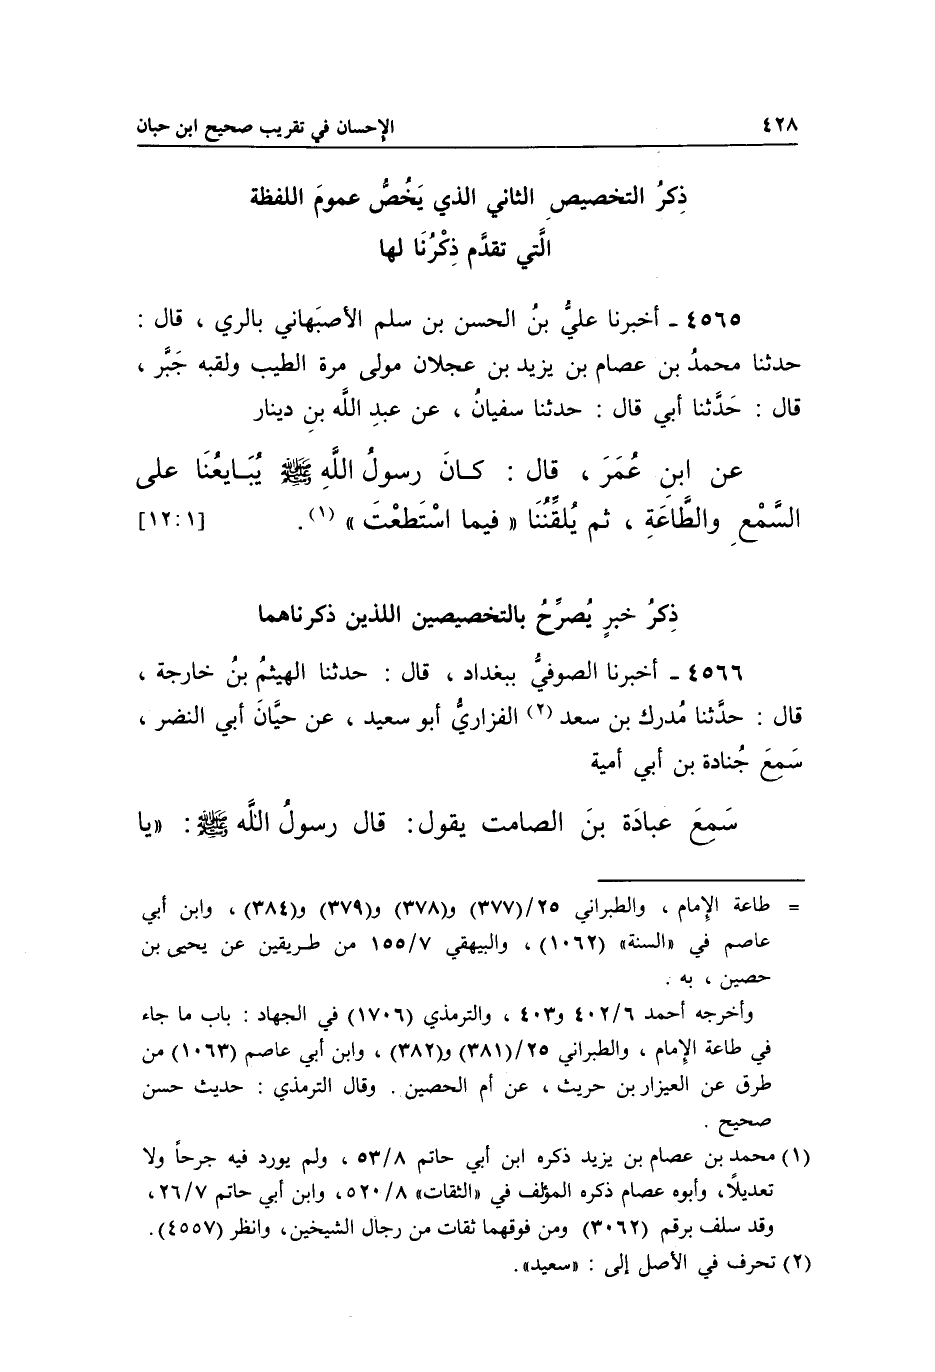 ٤٢٨ الإحسان في تقريب صحيح ابن حبان
ذِكرُ التخصيصِ الثاني الذي يَخُصُّ عمومَ اللفظة
الَّتي تقدَّم ذِكْرُنَا لها
٤٥٦٥ ـ أخبرنا عليُّ بنُ الحسن بن سلم الأصبَهاني بالري ، قال :
حدثنا محمدُ بن عصام بن يزيد بن عجلان مولى مرة الطيب ولقبه جَبَّر ،
قال : حَدَّثنا أبي قال : حدثنا سفيانُ ، عن عبدِ اللَّه بنِ دينار
عن ابنِ عُمَرَ ، قال : كـانَ رسولُ اللَّهِ ﷺ يُبَـايعُنَا على
السَّمْعِ والطَّاعَةِ ، ثم يُلقِّنُنَا « فيما اسْتَطعْتَ » (١). [١٢:١]
ذِكرُ خبرٍ يُصرِّحُ بالتخصيصين اللذين ذكرناهما
٤٥٦٦ ـ أخبرنا الصوفيُّ ببغداد ، قال : حدثنا الهيثمُ بنُ خارجة ،
قال : حدَّثنا مُدرك بن سعد (٢) الفزاريُّ أبو سعيد ، عن حيَّانَ أبي النضر ،
سَمِعَ جُنادة بن أبي أمية
سَمِعَ عبادَة بنَ الصامت يقول: قال رسولُ اللَّه ﷺ: «يا
= طاعة الإمام ، والطبراني ٢٥/(٣٧٧) و(٣٧٨) و(٣٧٩) و(٣٨٤) ، وابن أبي
عاصم في «السنة» (١٠٦٢) ، والبيهقي ١٥٥/٧ من طـريقين عن يحيى بن
حصين ، به .
وأخرجه أحمد ٤٠٢/٦ و٤٠٣ ، والترمذي (١٧٠٦) في الجهاد : باب ما جاء
في طاعة الإمام ، والطبراني ٢٥/(٣٨١) و(٣٨٢) ، وابن أبي عاصم (١٠٦٣) من
طرق عن العيزار بن حريث ، عن أم الحصين . وقال الترمذي : حديث حسن
صحيح .
(١) محمد بن عصام بن يزيد ذكره ابن أبي حاتم ٥٣/٨ ، ولم يورد فيه جرحاً ولا
تعديلًا، وأبوه عصام ذكره المؤلف في «الثقات» ٥٢٠/٨، وابن أبي حاتم ٢٦/٧،
وقد سلف برقم (٣٠٦٢) ومن فوقهما ثقات من رجال الشيخين، وانظر (٤٥٥٧).
(٢) تحرف في الأصل إلى : «سعيد».